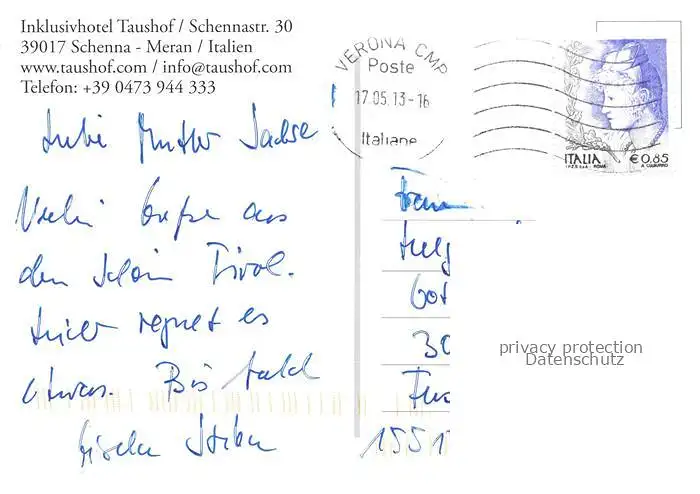 Inklusivhotel Taushof / Schennastr. 30
39017 Schenna - Meran / Italien
www.taushof.com / info@taushof.com
Telefon: +39 0473 944 333
VERONA CMP
Poste
17.05.13-16
Italiane
ITALIA
€ 0,85
I.P.Z.S. S.p.A. - ROMA
Liebe Mutter Sachse
Viele Grüße aus
dem schönen Tirol.
regnet es
etwas. Bis bald
Gisela
Frau
Got
30
1551
privacy protection
Datenschutz